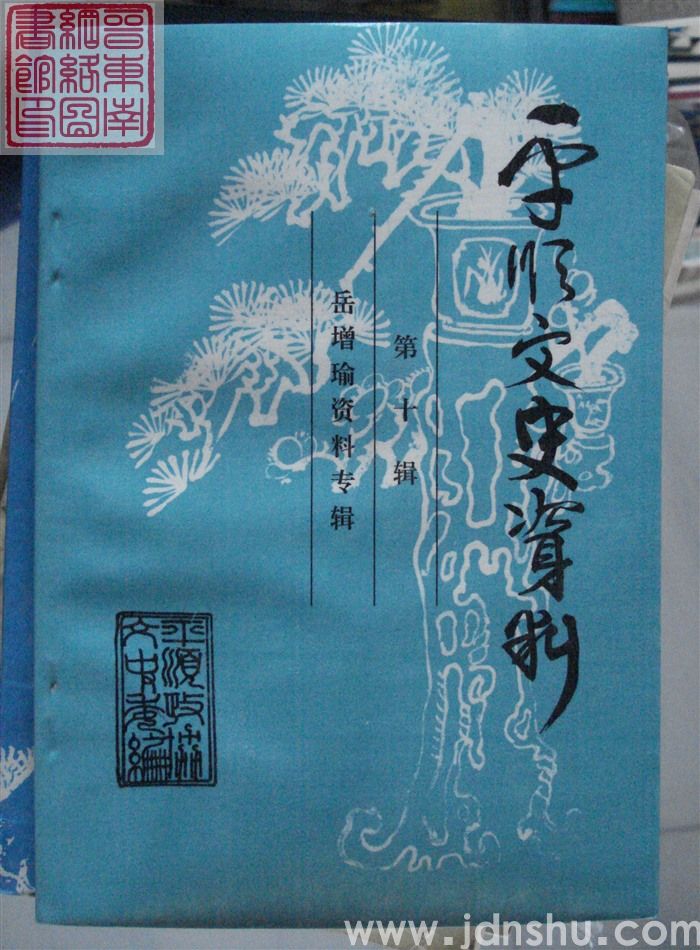 平顺文史資料
第十辑
岳增瑜资料专辑
平順政协
文史委编
晉東南
網絡圖
書館印
www.jdnshu.com